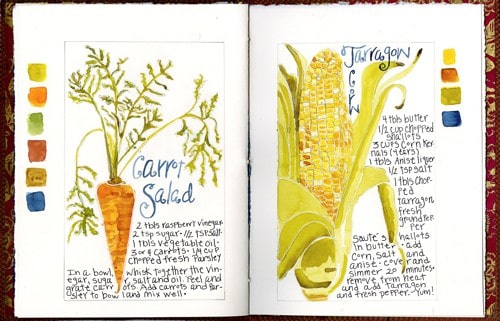 Carrot
Salad
2 tbls raspberry vinegar
2 tsp sugar · 1/2 tsp salt
1 tbls vegetable oil ·
3 or 4 carrots · 1/4 cup
chopped fresh parsley
In a bowl, whisk together the vin-
egar, sugar, salt and oil. Peel and
grate carrots. Add carrots and par-
sley to bowl and mix well.
Tarragon
Corn
4 tbls butter
1/2 cup chopped
shallots
3 cups corn ker-
nals (4 ears)
1 tbls Anise liquor
1/2 tsp salt
1 tbls chop-
ped
tarragon
fresh
ground pep-
per
Sauté shallots
in butter · add
corn, salt and
anise · cover and
simmer 20 minutes.
remove from heat
and add tarragon
and fresh pepper - Yum!